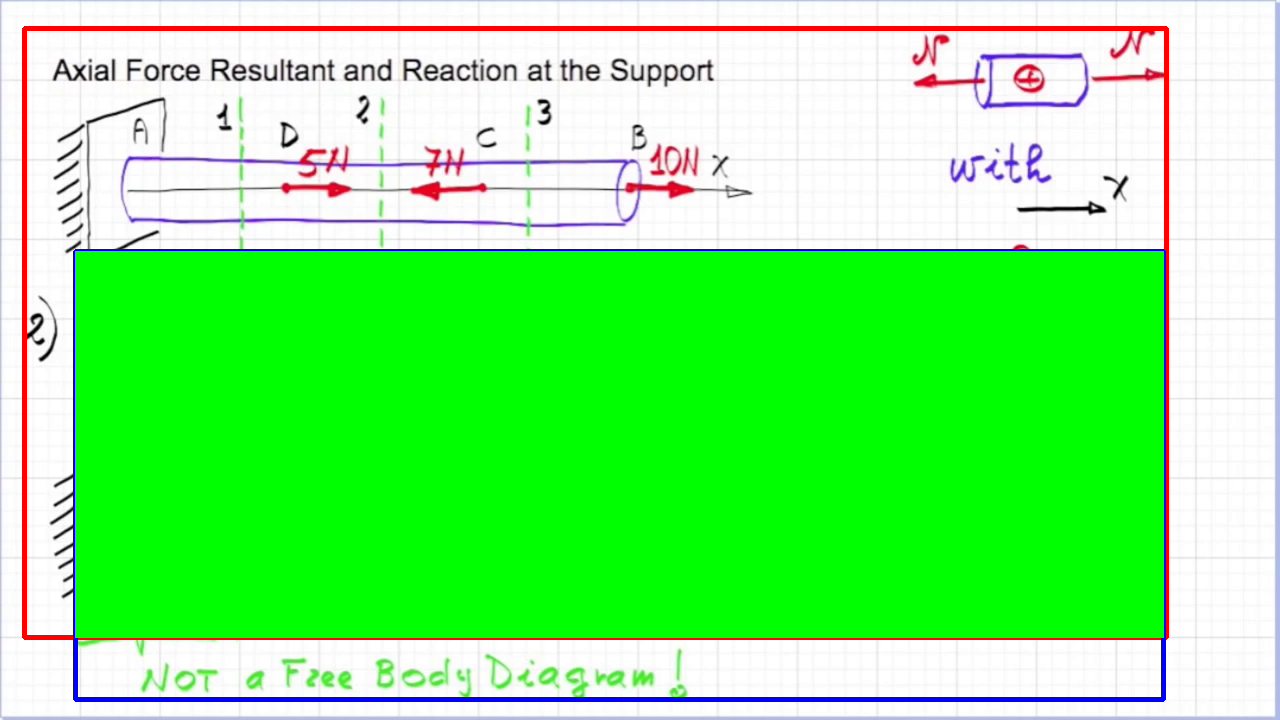 Axial Force Resultant and Reaction at the Support
N N
1 2 3
A D C B
5N 7N 10N X
with
X
2)
NOT a Free Body Diagram!